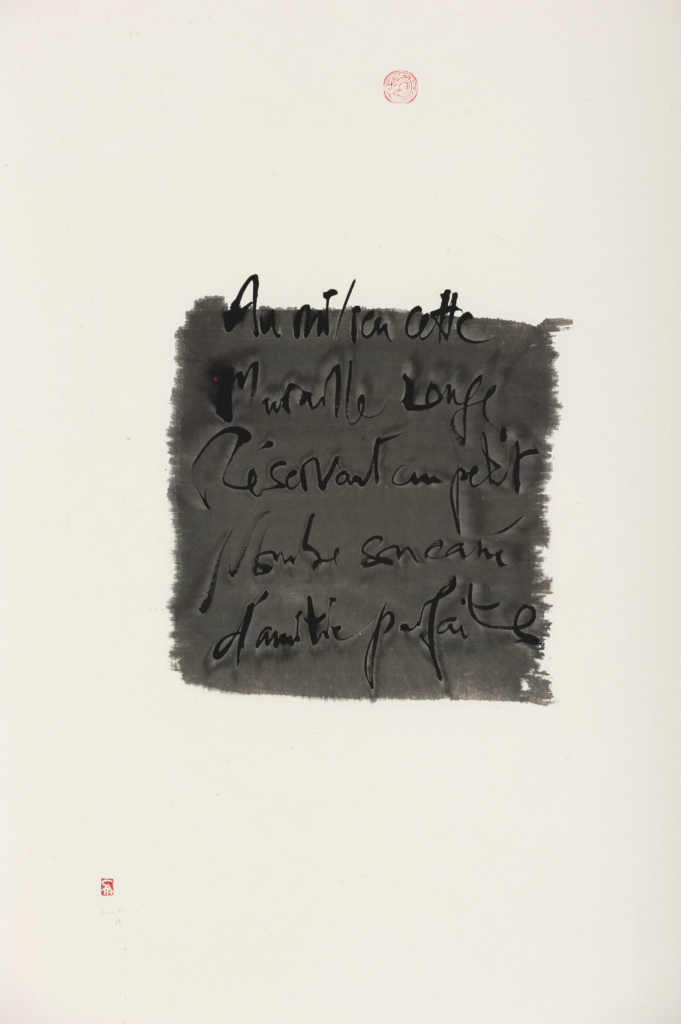 Au milieu cette
Muraille rouge
Réservant un petit
Nombre son carré
d'amitié parfaite